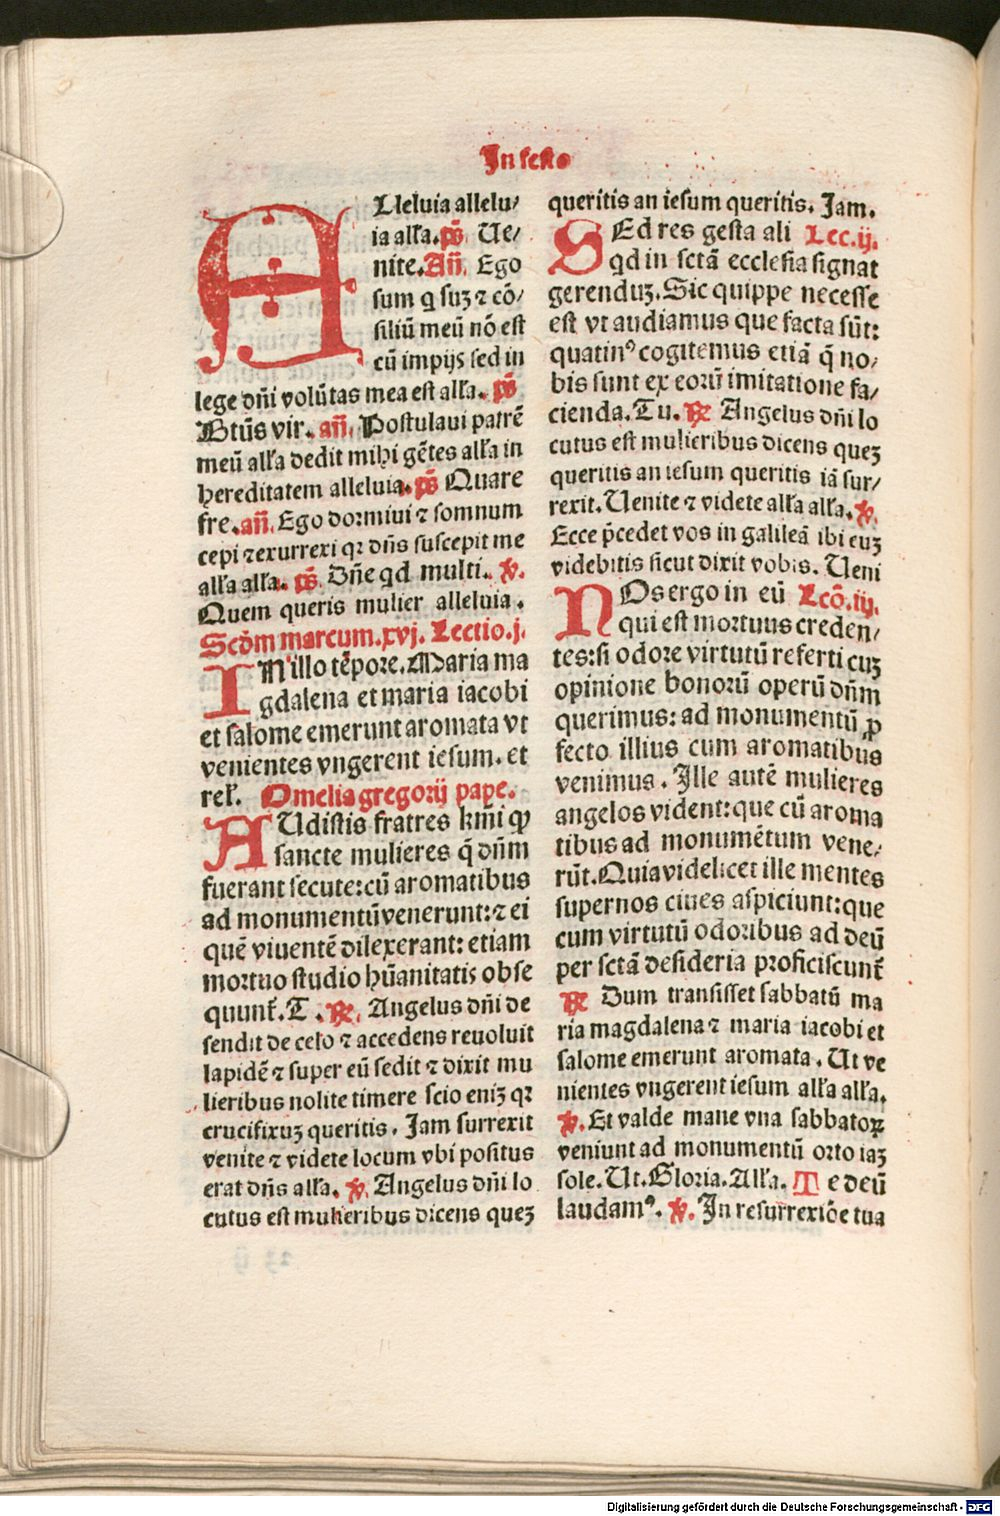 In festo
Alleluia allelu/
ia alľa. p̄s Ue/
nite. Añ. Ego
sum q suꝫ ⁊ cō/
siliū meū nō est
cū impijs sed in
lege dn̄i volūtas mea est alľa. p̄s
Btūs vir. añ. Postulaui patrē
meū alľa dedit mihi gētes alľa in
hereditatem alleluia. p̄s Quare
fre. añ. Ego dormiui ⁊ somnum
cepi ⁊ exurrexi qꝛ dn̄s suscepit me
alľa alľa. p̄s. Dn̄e qd multi. ℣.
Quem queris mulier alleluia.
Scd̄m marcum. xvj. Lectio. j.
IN illo tēpore. Maria ma
gdalena et maria iacobi
et salome emerunt aromata vt
venientes vngerent iesum. et
rel̕. Omelia gregorij pape.
AUdistis fratres km̄i ꝙ
sancte mulieres q̄ dn̄m
fuerant secute: cū aromatibus
ad monumentū venerunt: ⁊ ei
quē viuentē dilexerant: etiam
mortuo studio hūanitatis obse
quunt̄. T. ℟. Angelus dn̄i de
sendit de celo ⁊ accedens reuoluit
lapidē ⁊ super eū sedit ⁊ dixit mu
lieribus nolite timere scio eniꝫ qꝛ
crucifixuꝫ queritis. Jam surrexit
venite ⁊ videte locum vbi positus
erat dn̄s alľa. ℣. Angelus dn̄i lo
cutus est mulieribus dicens queꝫ
queritis an iesum queritis. Jam.
SEd res gesta ali Lec. ij.
qd in sctā ecclesia signat
gerenduꝫ. Sic quippe necesse
est vt audiamus que facta sūt:
quatinꝰ cogitemus etiā q̄ no/
bis sunt ex eorū imitatione fa/
cienda. Tu. ℟ Angelus dn̄i lo
cutus est mulieribus dicens queꝫ
queritis an iesum queritis iā sur/
rexit. Uenite ⁊ videte alľa alľa. ℣.
Ecce p̄cedet vos in galileā ibi euꝫ
videbitis sicut dixit vobis. Ueni
NOs ergo in eū Lcō. iij.
qui est mortuus creden/
tes: si odore virtutū referti cuꝫ
opinione bonorū operū dn̄m
querimus: ad monumentū ꝓ
fecto illius cum aromatibus
venimus. Ille autē mulieres
angelos vident: que cū aroma
tibus ad monumētum vene/
rūt. Quia videlicet ille mentes
supernos ciues aspiciunt: que
cum virtutū odoribus ad deū
per sctā desideria proficiscunt̄
℟ Dum transisset sabbatū ma
ria magdalena ⁊ maria iacobi et
salome emerunt aromata. Ut ve
nientes vngerent iesum alľa alľa.
℣. Et valde mane vna sabbatoꝝ
veniunt ad monumentū orto iaꝫ
sole. Ut. Gloria. Alľa. Te deū
laudamꝰ. ℣. In resurrexiōe tua
Digitalisierung gefördert durch die Deutsche Forschungsgemeinschaft - DFG